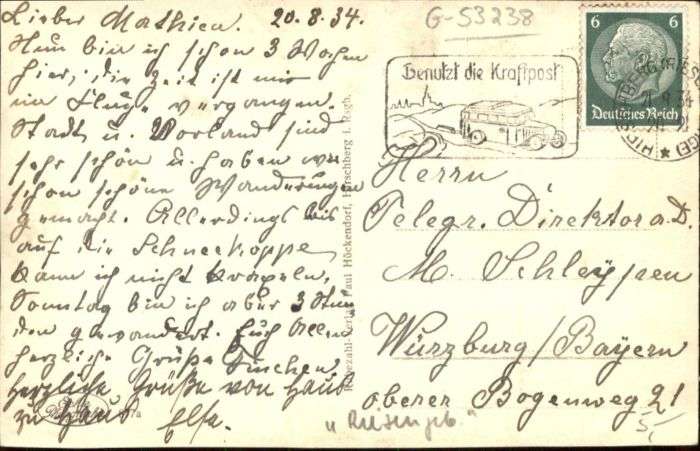 Lieber Mathieu. 20.8.34.
Nun bin ich schon 3 Wochen
hier, die Zeit ist mir
im Fluge vergangen.
Stadt u. Vorland sind
sehr schön u. haben wir
schon schöne Wanderungen
gemacht. Allerdings bis
auf die Schneekoppe
kann ich nicht kraxeln.
Sonntag bin ich aber 3 Stun
den gewandert. Euch Allen
herzliche Grüße Finchen.
Herzliche Grüße von Haus
zu Haus Else.
Rübezahl-Verlag Paul Höckendorf, Hirschberg i. Rsgb.
G-53238
Benutzt die Kraftpost
6 6
Deutsches Reich
Herrn
Telegr. Direktor a.D.
M. Schleypen
Würzburg/Bayern
oberer Bogenweg 21
5,
"Riesengeb."